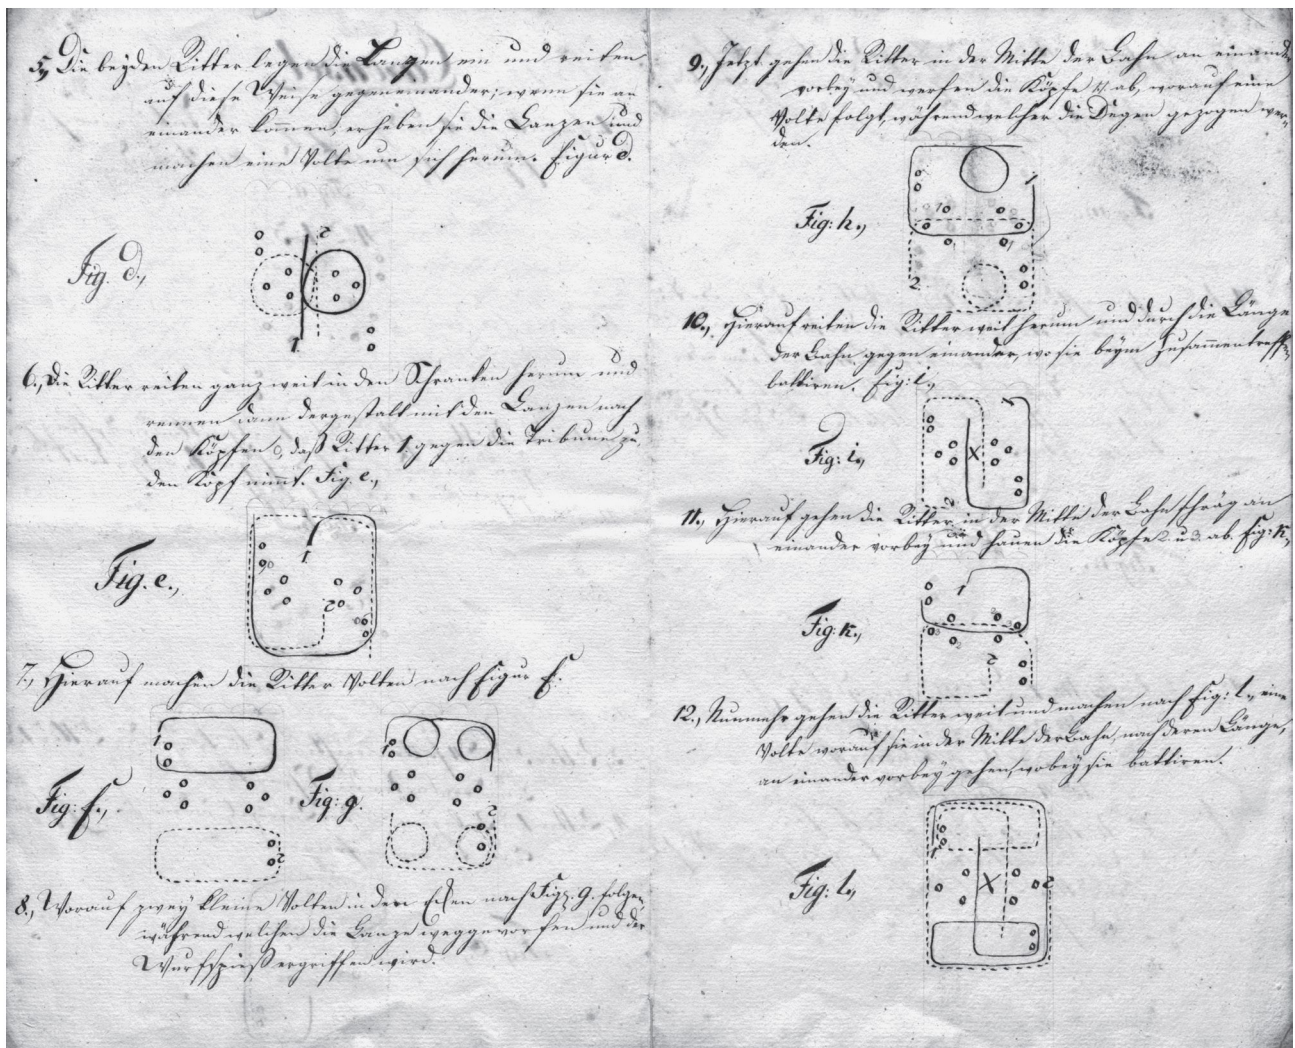 5., Die beyden Ritter legen die Lanzen ein und reiten
auf diese Weise gegeneinander; wenn sie an
einander kommen, erheben sie die Lanzen und
machen eine Volte um sich herum. Figur d.
2
Fig. d.,
1
6., Die Ritter reiten ganz weit in den Schranken herum und
rennen dann dergestalt mit den Lanzen nach
den Köpfen, daß Ritter 1. gegen die Tribune zu,
den Kopf nimt. Fig. e.,
1
Fig. e.,
2
7., Hierauf machen die Ritter Volten nach Figur f.
1
1
Fig: f.,
Fig: g.
2
2
8., Worauf zwey kleine Volten in den Ecken nach Fig. g. folgen,
während welchen die Lanze weggeworfen und der
Wurfspieß ergriffen wird.
9., Jetzt gehen die Ritter in der Mitte der Bahn an einander
vorbey und werfen die Köpfe ab, worauf eine
Volte folgt, während welcher die Degen gezogen wer-
den.
1
Fig: h.,
2
10., Hierauf reiten die Ritter weit herum und durch die Länge
der Bahn gegen einander, wo sie beym Zusammentreffen
battiren. Fig: i.,
1
Fig: i.,
X
2
11., Hierauf gehen die Ritter in der Mitte der Bahn schräg an
einander vorbey und hauen die Köpfe 2. u. 3. ab. Fig: k.,
1
Fig: k.,
2
12., Nunmehr gehen die Ritter weit und machen nach Fig: l., eine
Volte worauf sie in der Mitte der Bahn, nach deren Länge,
an einander vorbey gehen, wobey sie battiren.
1
Fig: l.,
X
2